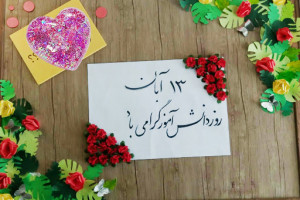 ۱۳ آبان
روز دانش آموز گرامی باد